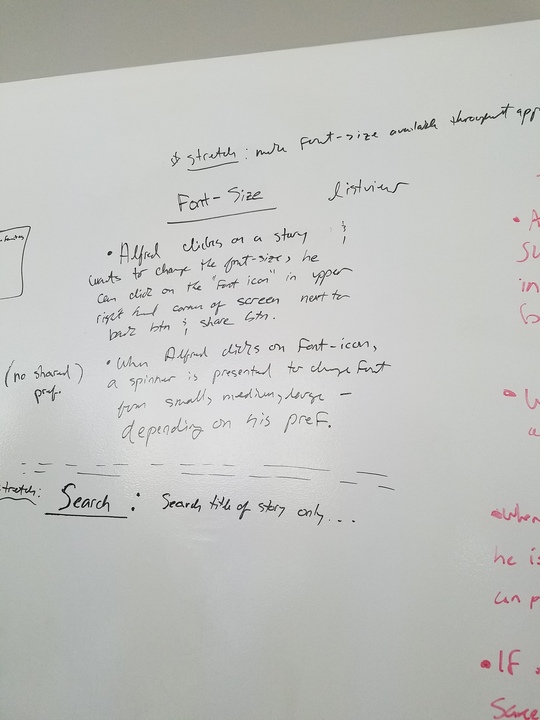 stretch: make font-size available throughout app
Font-Size
listview
• Alfred clicks on a story &
wants to change the font-size, he
can click on the "Font icon" in upper
right hand corner of screen next to
back btn & share btn.
(no shared
pref.
• When Alfred clicks on Font-icon,
a spinner is presented to change Font
from small, medium, large -
depending on his pref.
stretch: Search: Search title of story only...
• A
su
in
• W
• When
he is
can p
• IF
Same